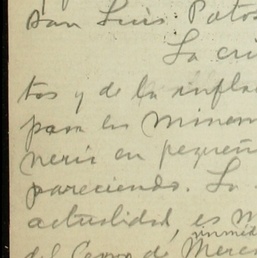 San Luis Potos
La cri
tos y de la infla
para los mineria
neria en pequeñ
pareciendo. La
actualidad, es m
inmed
del Cerro de Merca